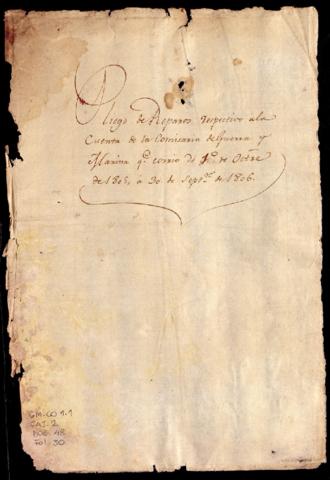 Pliego de Reparos respectivo a la
Cuenta de la Comisaria de Guerra y
Marina qe. corrio de 1o. de Octre
de 1805, a 30 de Septre. de 1806.
GM-CO 1.1
CAJ. 2
DOC. 48
Fol. 30